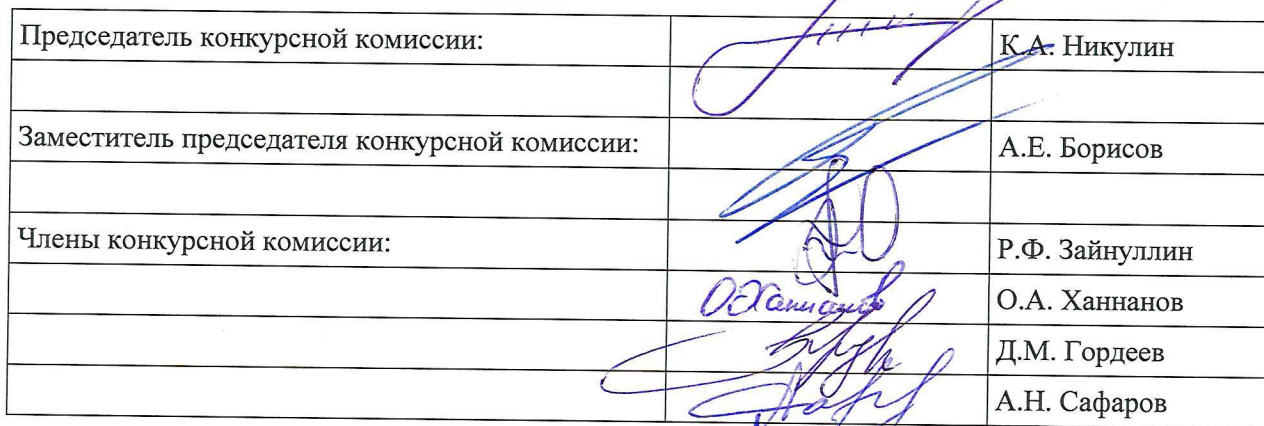 Председатель конкурсной комиссии: К.А. Никулин
Заместитель председателя конкурсной комиссии: А.Е. Борисов
Члены конкурсной комиссии: Р.Ф. Зайнуллин
О.А. Ханнанов
Д.М. Гордеев
А.Н. Сафаров